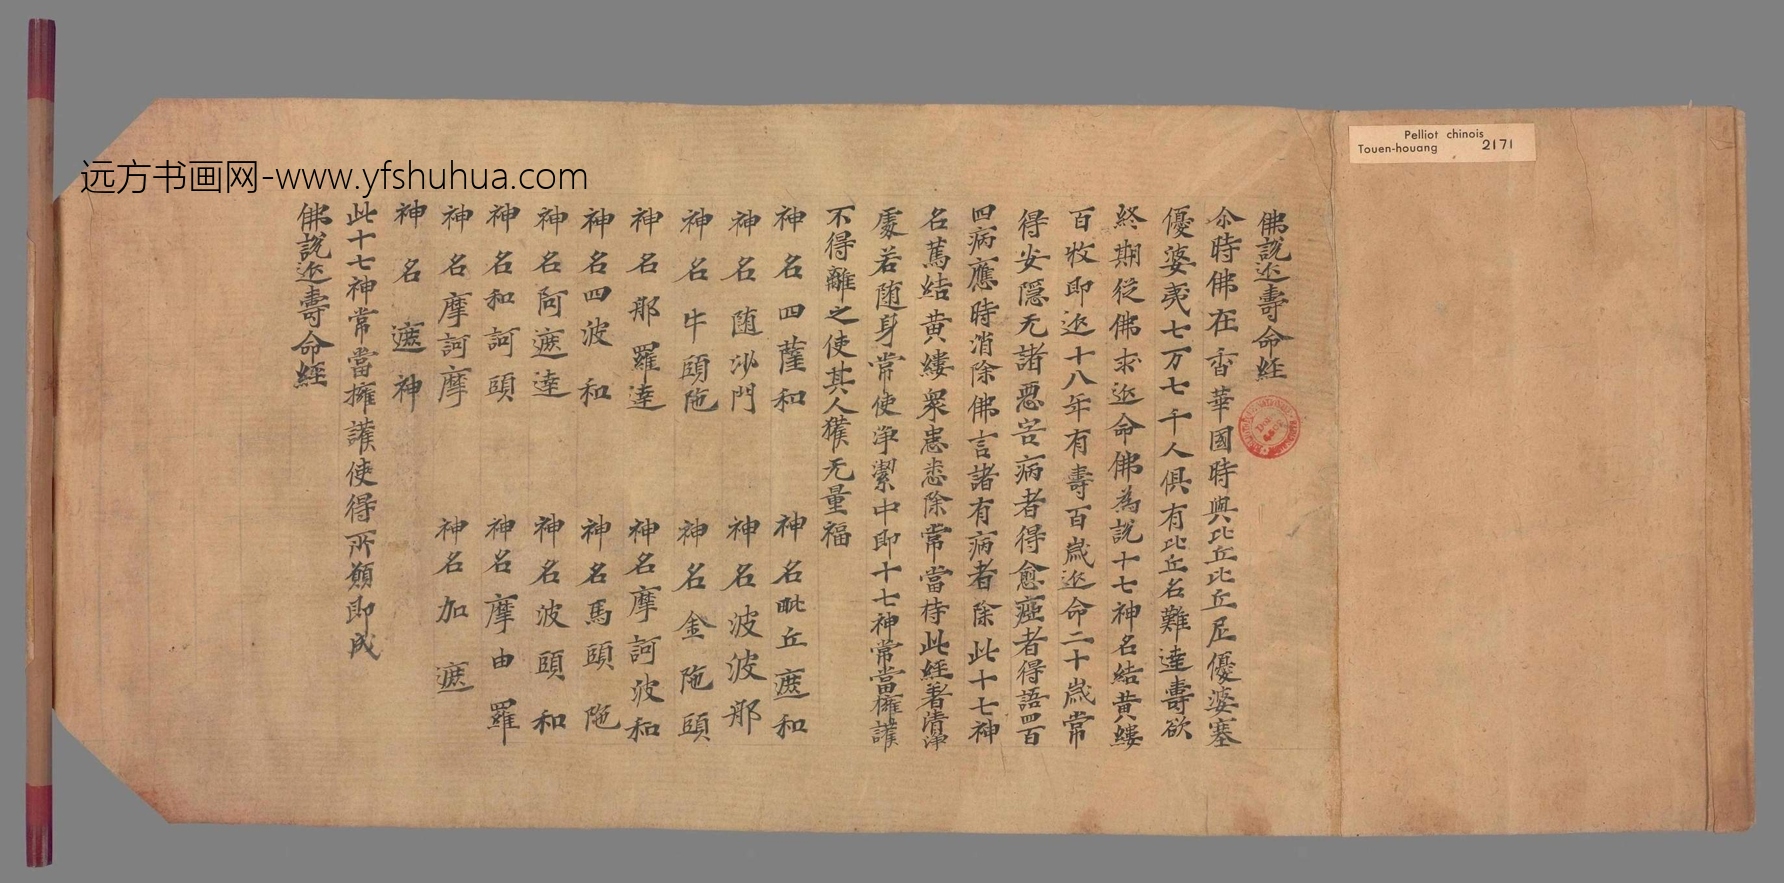 Pelliot chinois
Touen-houang 2171
远方书画网-www.yfshuhua.com
佛說延壽命經
尒時佛在香華國時與比丘比丘尼優婆塞
優婆夷七万七千人俱有比丘名難達壽欲
終期從佛求延命佛為說十七神名結黃縷
百牧即延十八年有壽百歲延命二十歲常
得安隱无諸惡害病者得愈瘂者得語四百
四病應時消除佛言諸有病者除此十七神
名萬結黃縷眾患悉除常當持此經著清淨
處若随身常使淨潔中即十七神常當擁護
不得離之使其人獲无量福
神名四薩和 神名毗丘遮和
神名随沙門 神名波波那
神名牛頭陁 神名金陁頭
神名那羅達 神名摩訶波和
神名四波和 神名馬頭陁
神名阿遮達 神名波頭和
神名和訶頭 神名摩由羅
神名摩訶摩 神名加遮
神名遮神
此十七神常當擁護使得所願即成
佛說延壽命經